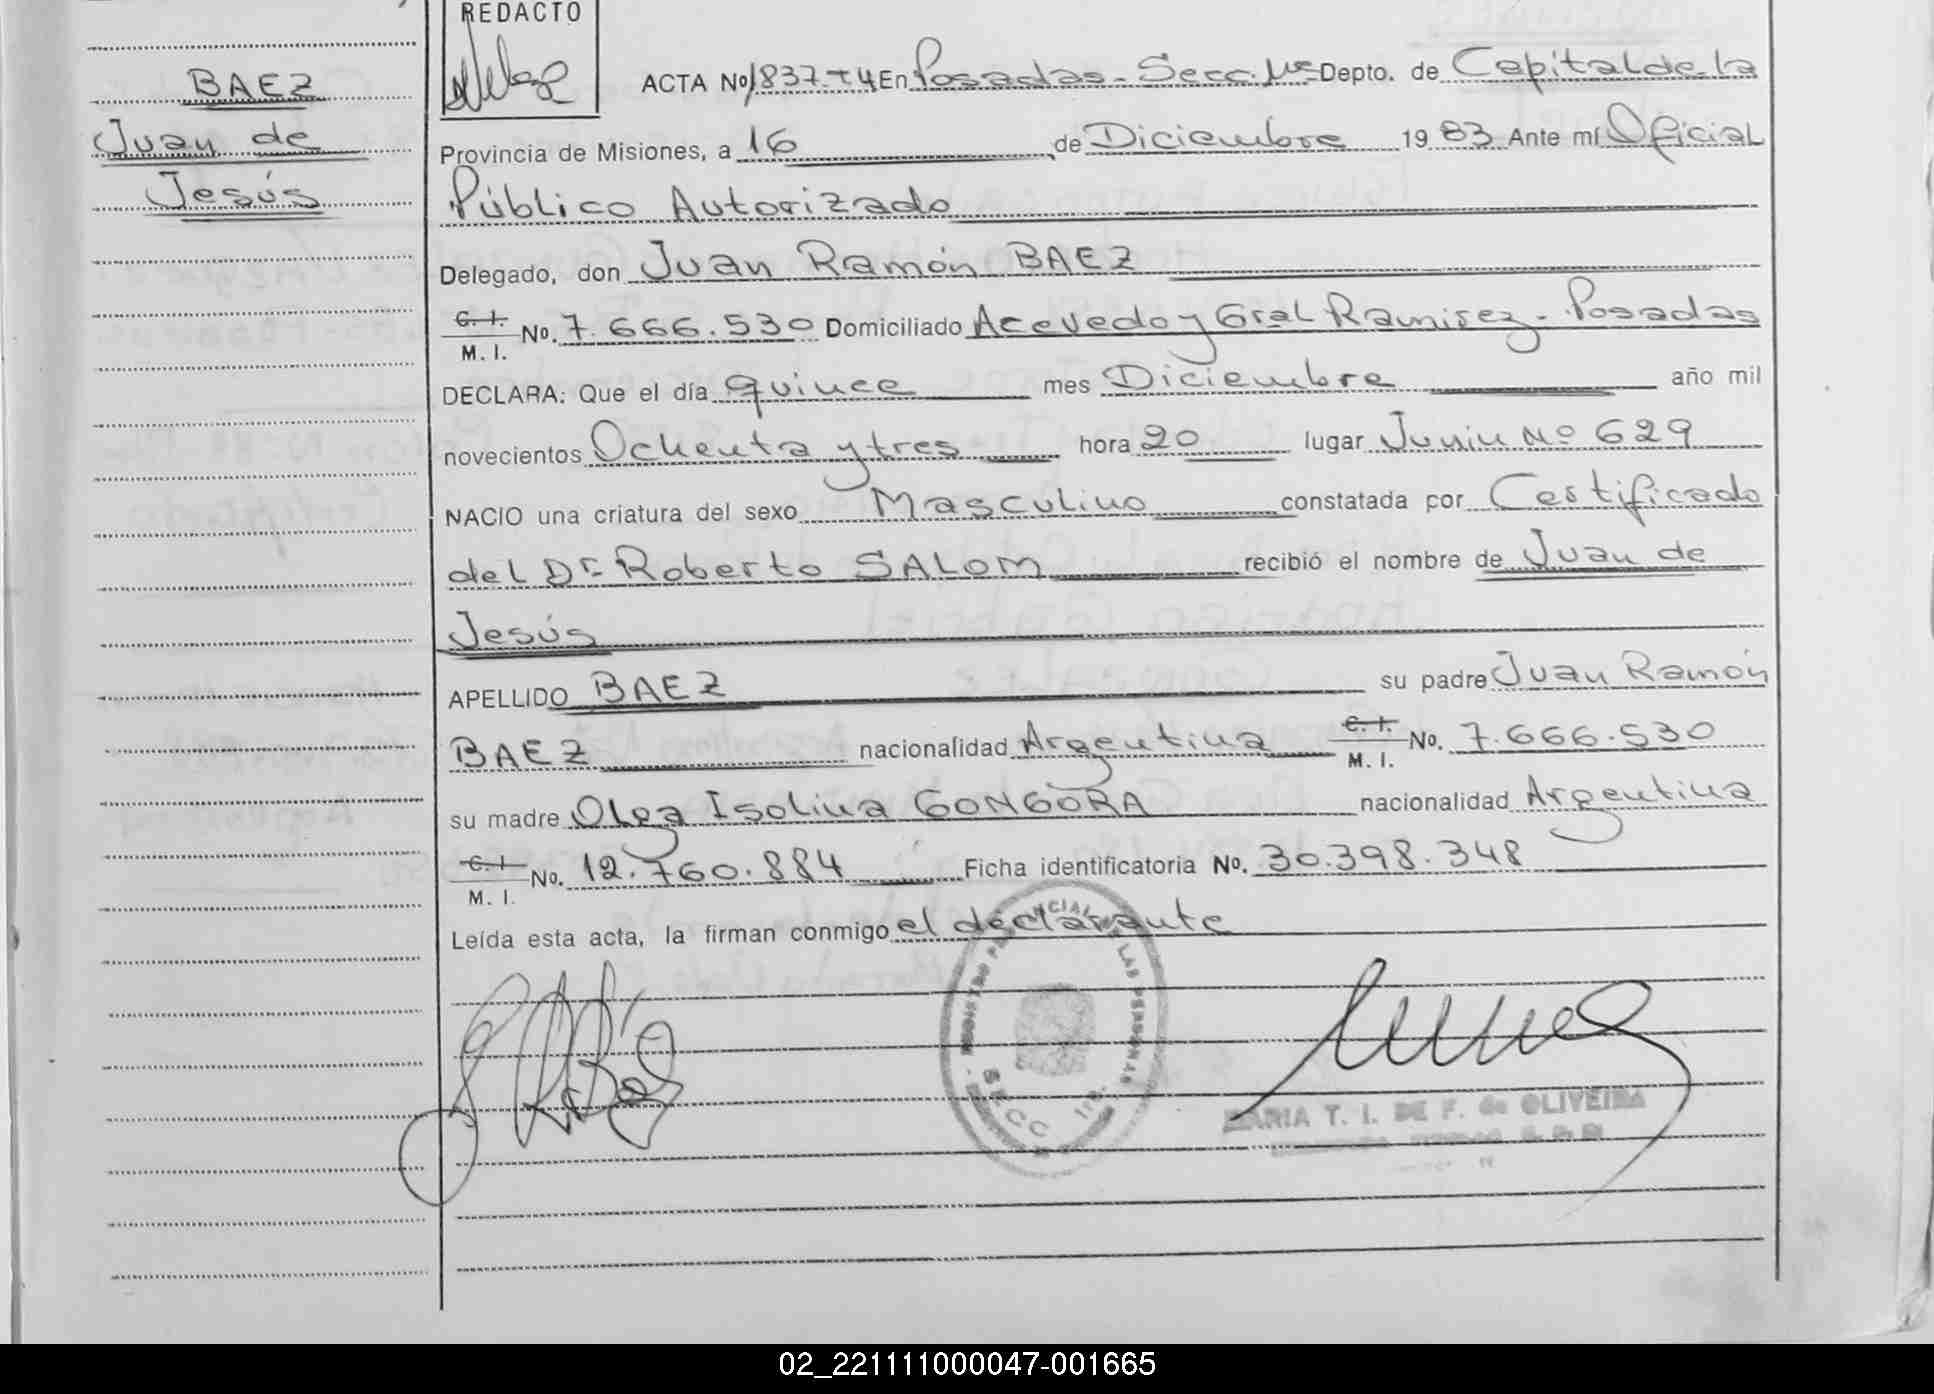 REDACTO
BAEZ
Juan de
Jesús
ACTA No 1837-T4 En Posadas - Secc. 1ra Depto. de Capital de la
Provincia de Misiones, a 16 de Diciembre 1983 Ante mí Oficial
Público Autorizado
Delegado, don Juan Ramón BAEZ
C. I.
M. I. No. 7.666.530 Domiciliado Acevedo y Gral Ramirez - Posadas
DECLARA: Que el día quince mes Diciembre año mil
novecientos Ochenta y tres hora 20 lugar Junin No 629
NACIO una criatura del sexo Masculino constatada por Certificado
del Dr Roberto SALOM recibió el nombre de Juan de
Jesús
APELLIDO BAEZ su padre Juan Ramón
BAEZ nacionalidad Argentina C. I. M. I. No. 7.666.530
su madre Olga Isolina GONGORA nacionalidad Argentina
C. I.
M. I. No. 12.760.884 Ficha identificatoria No. 30.398.348
Leída esta acta, la firman conmigo el declarante
LAS PERSONAS
SECC 1ra.
MARIA T. I. DE F. de OLIVEIRA
02_221111000047-001665